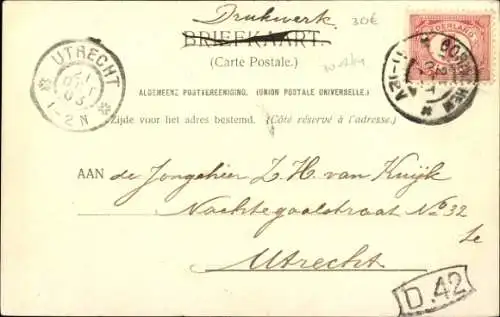 Drukwerk
30€
BRIEFKAART.
(Carte Postale.)
ALGEMEENE POSTVEREENIGING. (UNION POSTALE UNIVERSELLE.)
Zijde voor het adres bestemd. (Côté réservé à l'adresse.)
UTRECHT
1-2N
GORINCHEM
AAN de Jongeheer Z. H. van Kuijk
Nachtegaalstraat No 32
te
Utrecht
D.42